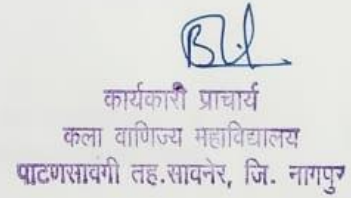 कार्यकारी प्राचार्य
कला वाणिज्य महाविद्यालय
पाटणसावंगी तह.सावनेर, जि. नागपुर